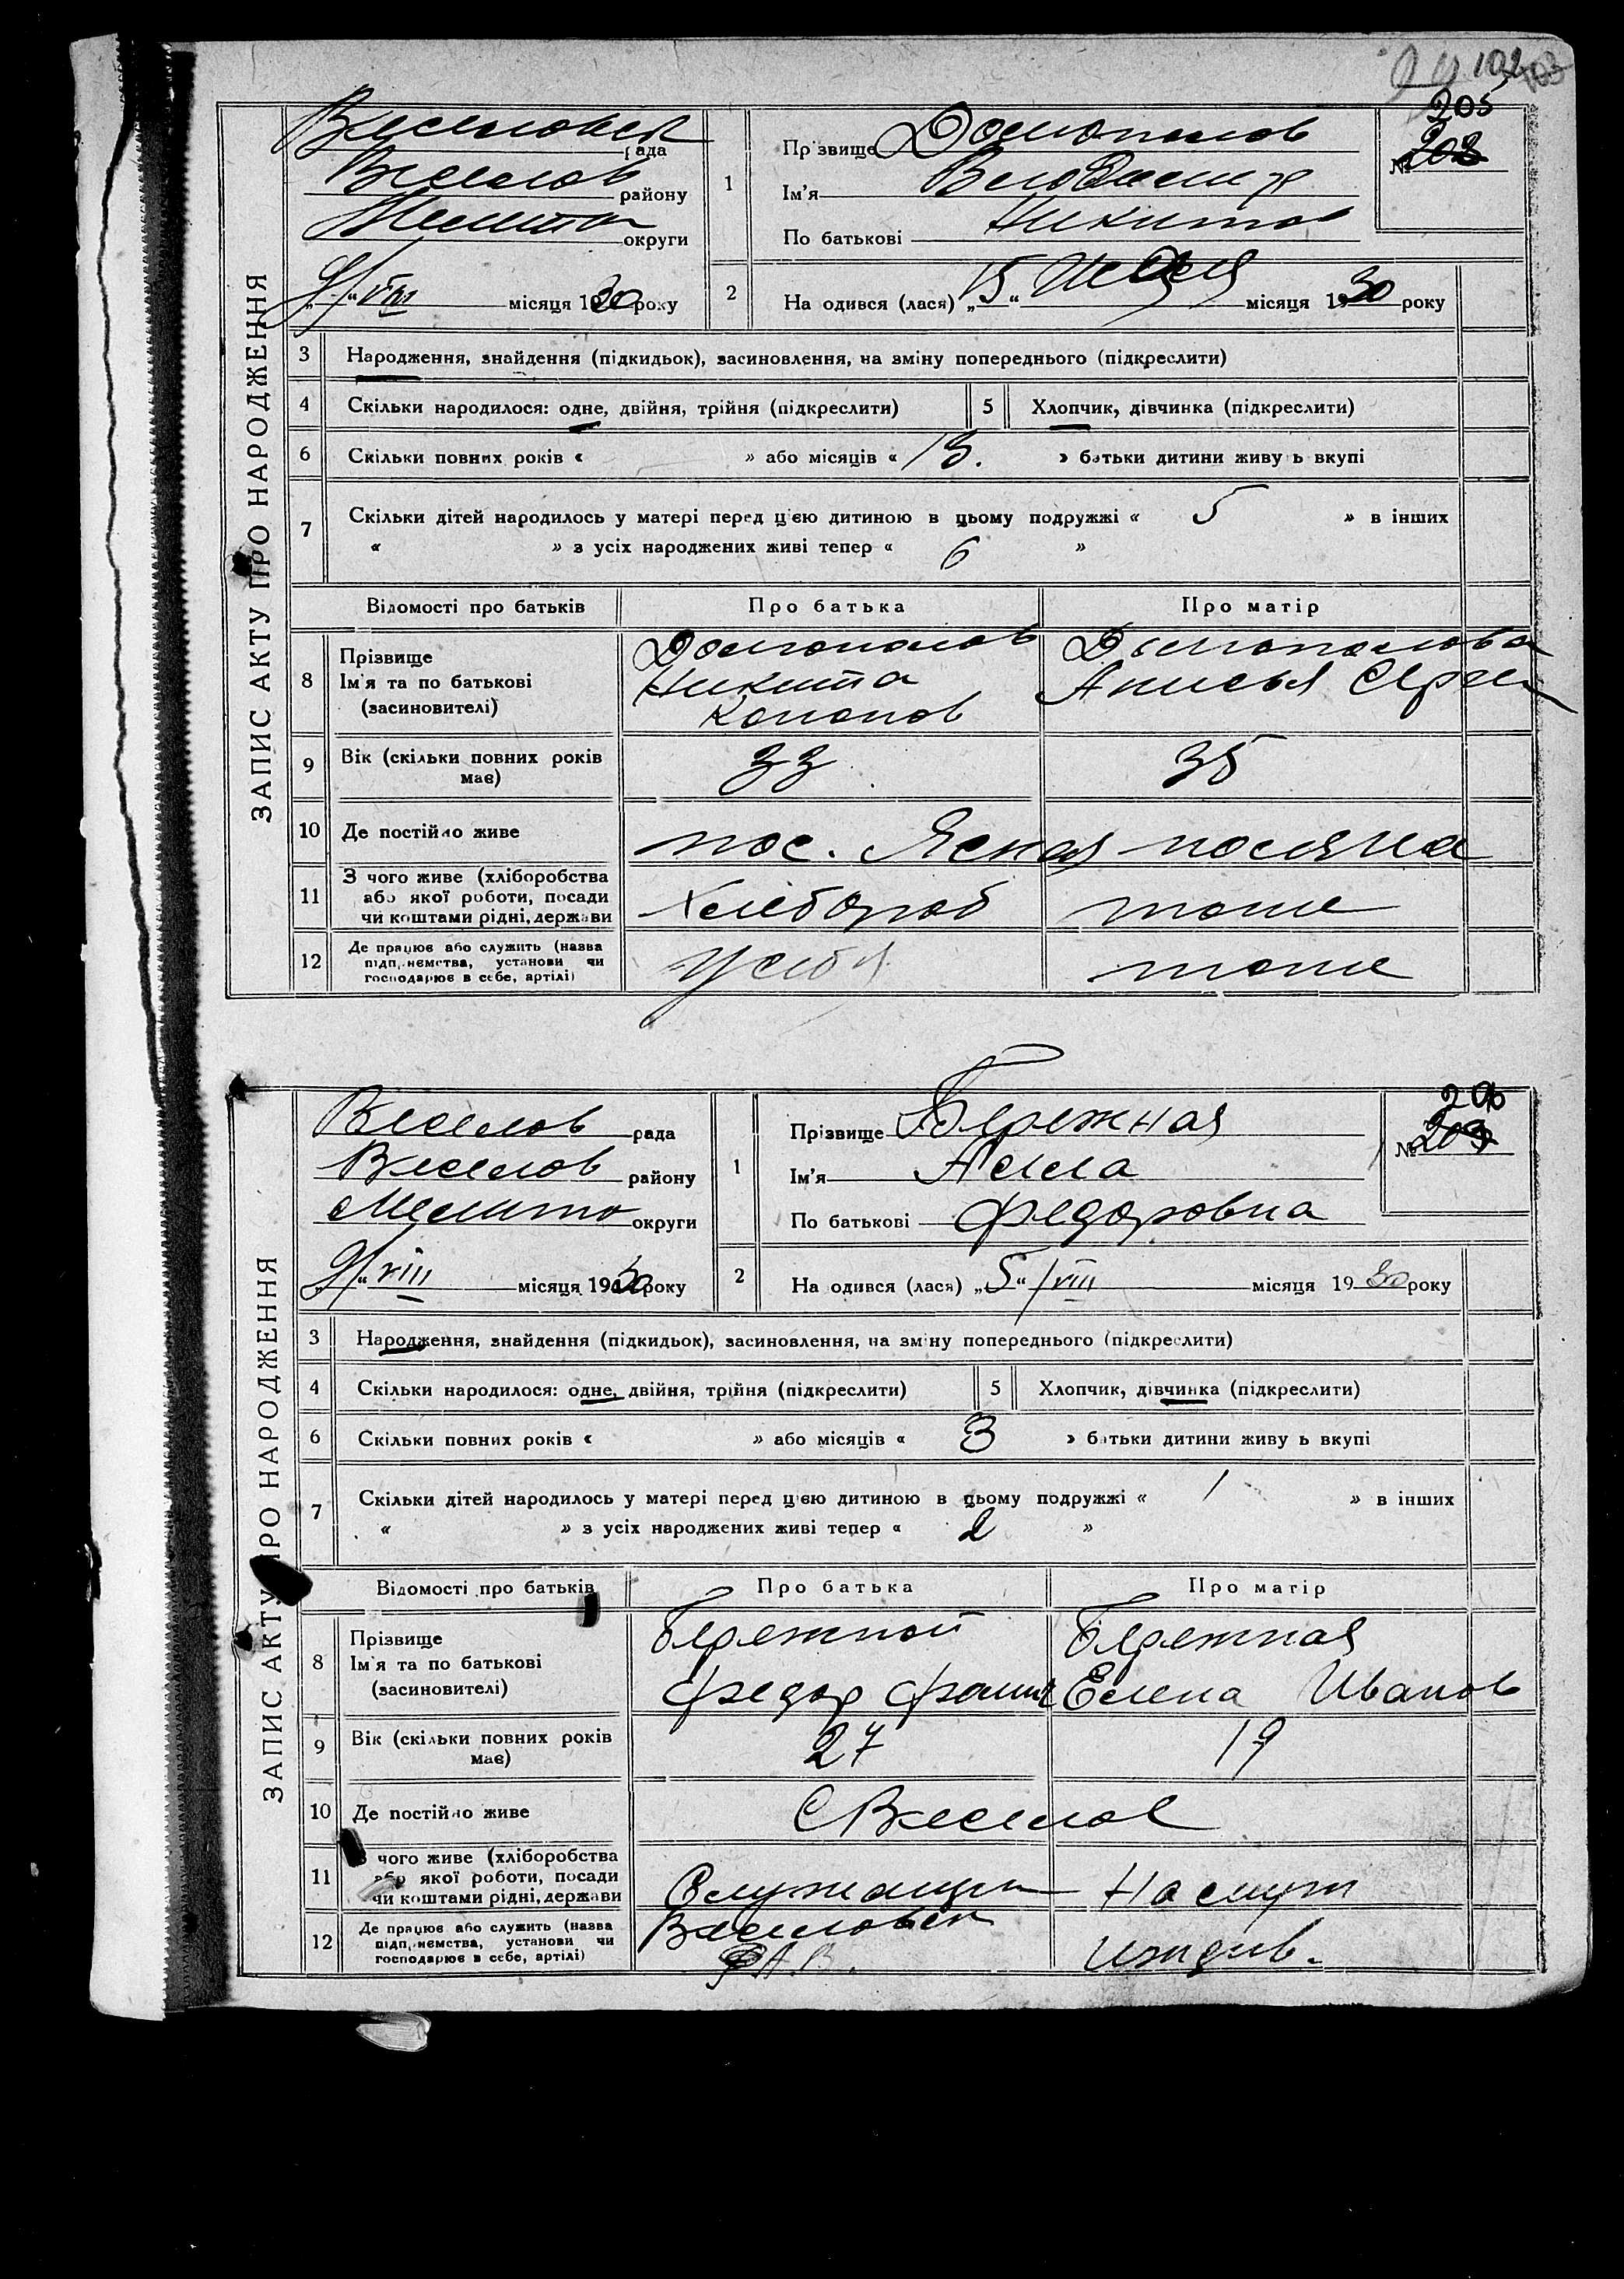 102
205
203
ЗАПИС АКТУ ПРО НАРОДЖЕННЯ
Веселовск рада
Веселов району
Мелито округи
9/VIII місяця 1930 року
1
Прізвище Домопалов
Ім'я Владимир
По батькові Никитов
№
2
На одився (лася) „15“ Июля місяця 1930 року
3 Народження, знайдення (підкидьок), засиновлення, на зміну попереднього (підкреслити)
4 Скільки народилося: одне, двійня, трійня (підкреслити) 5 Хлопчик, дівчинка (підкреслити)
6 Скільки повних років « » або місяців « 13. » батьки дитини живу ь вкупі
7 Скільки дітей народилось у матері перед цією дитиною в цьому подружжі « 5 » в інших
« » з усіх народжених живі тепер « 6 »
Відомості про батьків Про батька Про матір
8 Прізвище
Ім'я та по батькові
(засиновителі)
Домопалов
Никита
Кононов
Домопалова
Анисья Серг
9 Вік (скільки повних років має) 33 35
10 Де постійно живе пос. Ясная поляна
11 З чого живе (хліборобства
або якої роботи, посади
чи коштами рідні, держави
Хлебороб тоже
12 Де працює або служить (назва
підприємства, установи чи
господарює в себе, артілі)
У себя тоже
ЗАПИС АКТУ ПРО НАРОДЖЕННЯ
Веселов рада
Веселов району
Мелито округи
9/VIII місяця 1930 року
1
Прізвище Бережная
Ім'я Алла
По батькові Федоровна
206
№ 203
2
На одився (лася) „5“/VIII місяця 1930 року
3 Народження, знайдення (підкидьок), засиновлення, на зміну попереднього (підкреслити)
4 Скільки народилося: одне, двійня, трійня (підкреслити) 5 Хлопчик, дівчинка (підкреслити)
6 Скільки повних років « » або місяців « 3 » батьки дитини живу ь вкупі
7 Скільки дітей народилось у матері перед цією дитиною в цьому подружжі « 1 » в інших
« » з усіх народжених живі тепер « 2 »
Відомості про батьків Про батька Про матір
8 Прізвище
Ім'я та по батькові
(засиновителі)
Бережной
Федор Фомич
Бережная
Елена Иванов
9 Вік (скільки повних років має) 27 19
10 Де постійно живе С Веселое
11 З чого живе (хліборобства
або якої роботи, посади
чи коштами рідні, держави
Служащий На служ
12 Де працює або служить (назва
підприємства, установи чи
господарює в себе, артілі)
Веселовск
иждив.